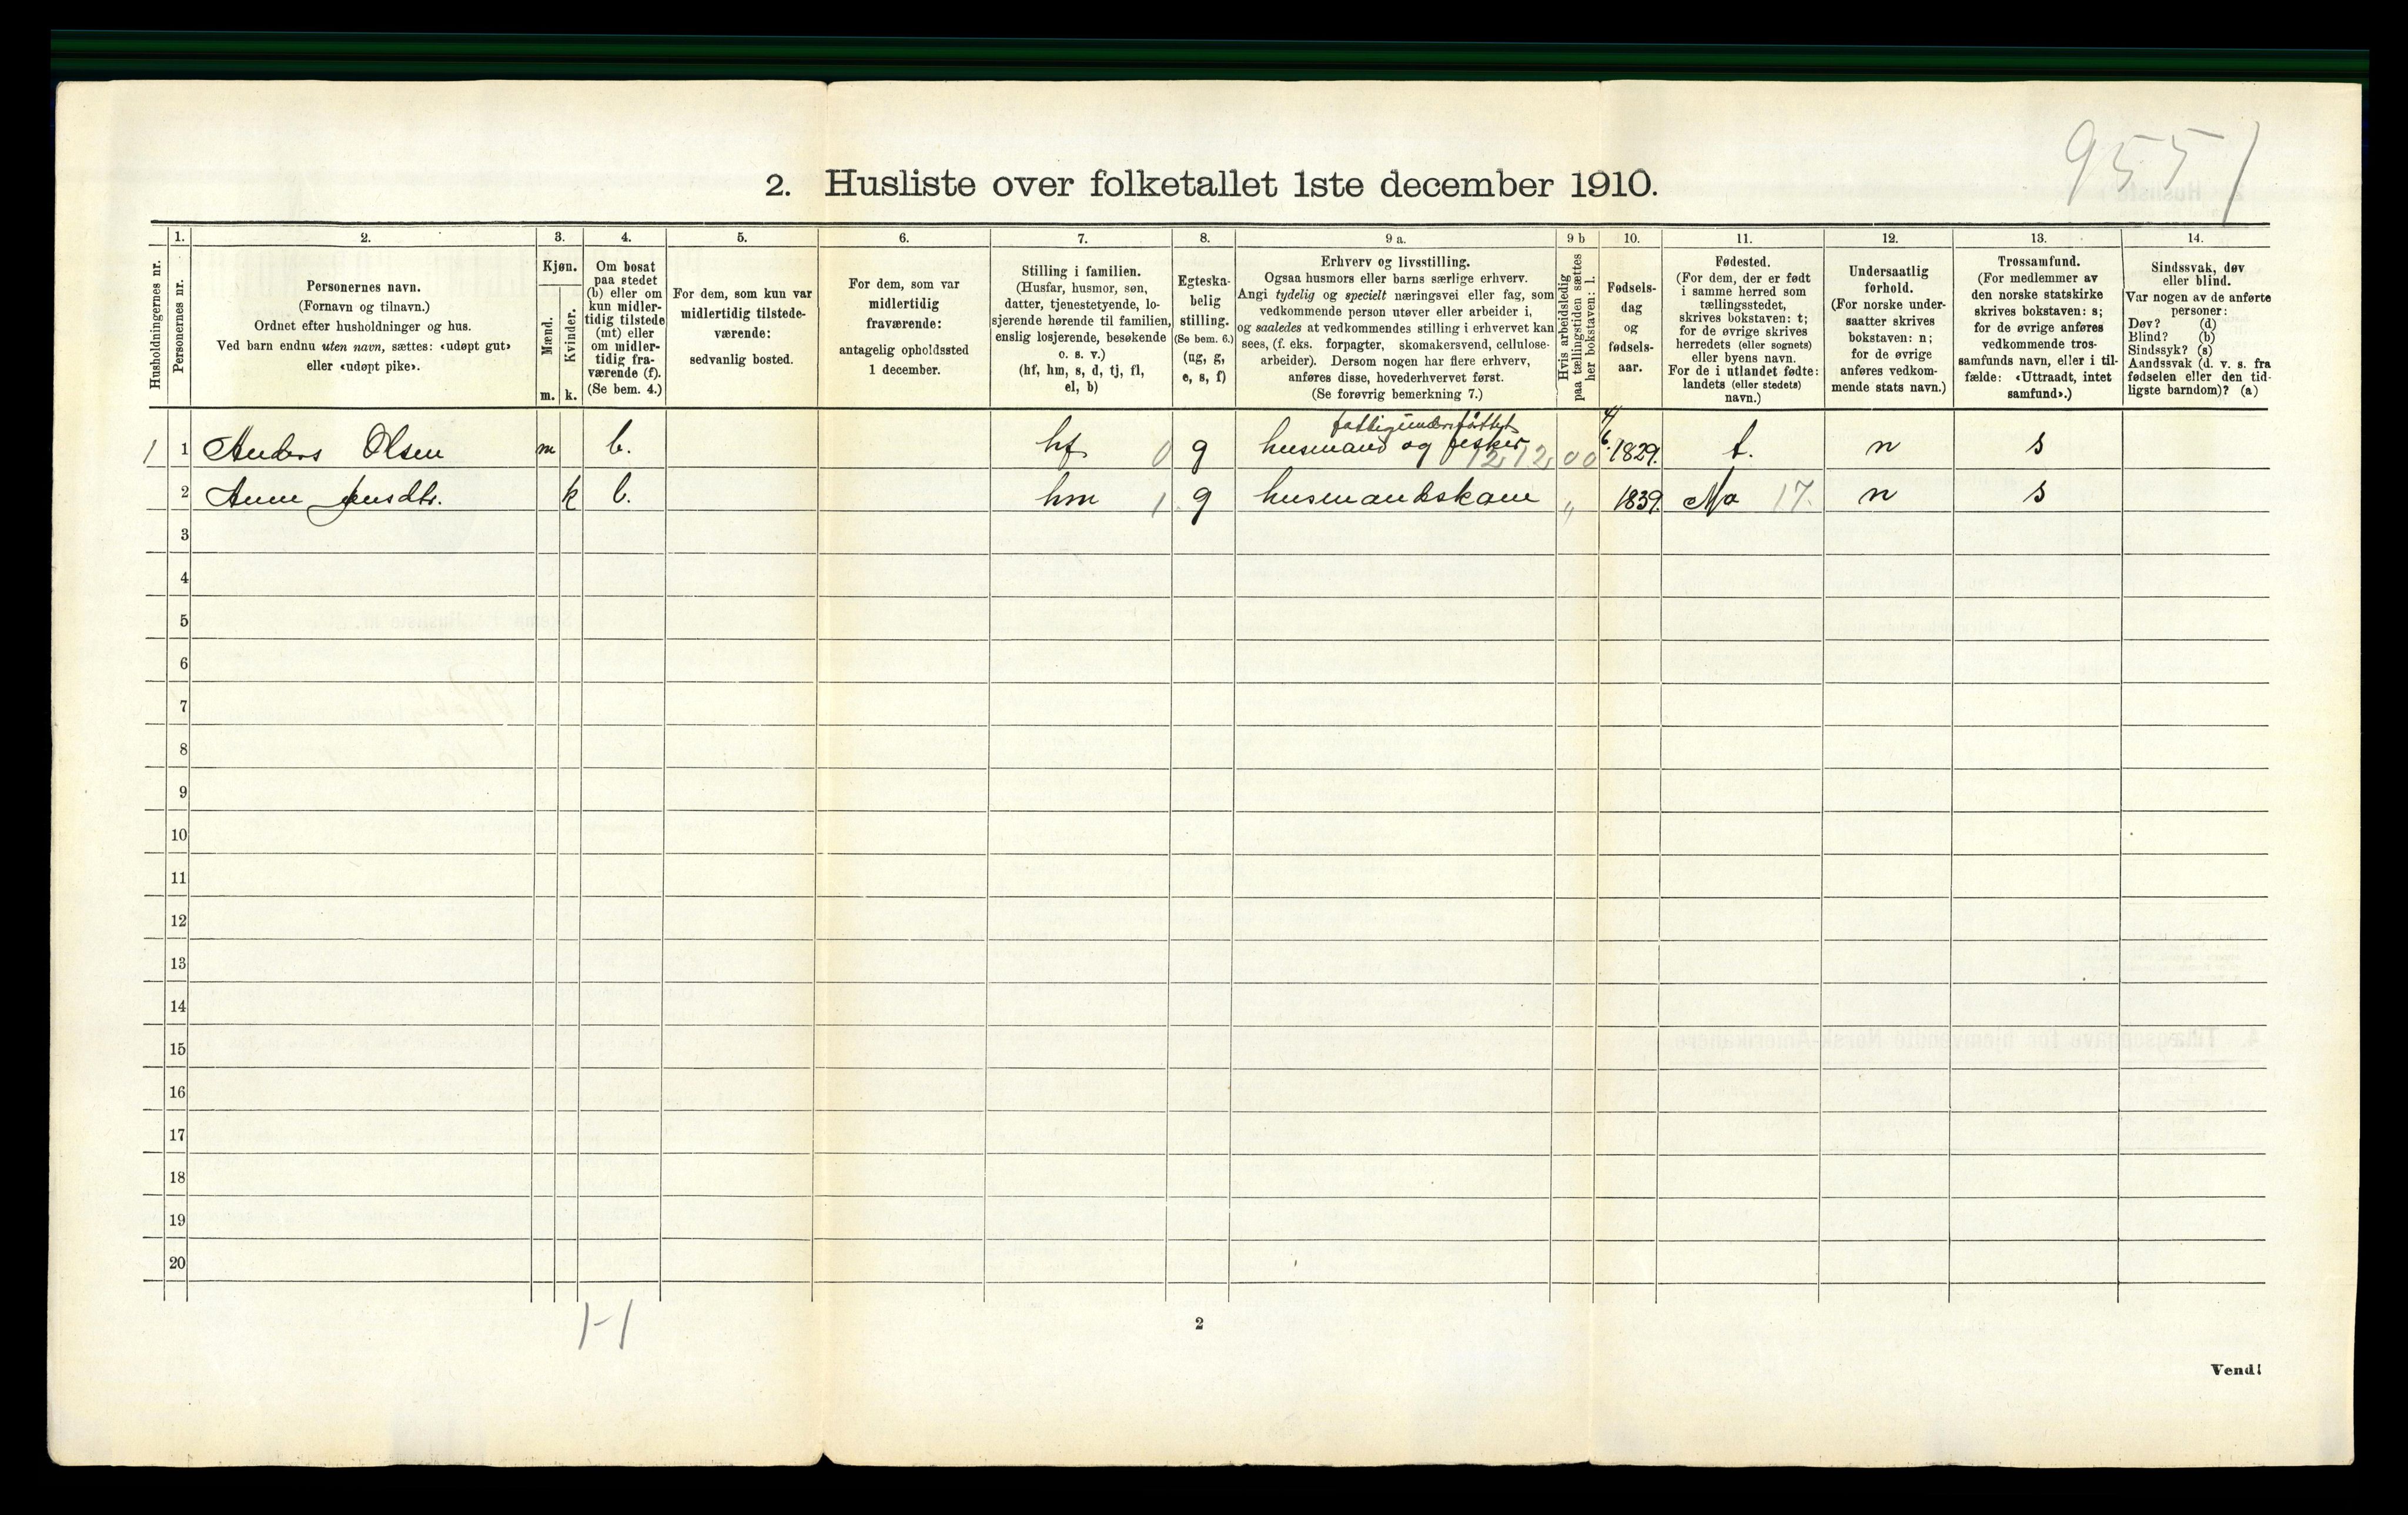 9551
2. Husliste over folketallet 1ste december 1910.
Husholdningernes nr.
1.
Personernes nr.
2.
Personernes navn.
(Fornavn og tilnavn.)
Ordnet efter husholdninger og hus.
Ved barn endnu uten navn, sættes: «udøpt gut»
eller «udøpt pike».
3.
Kjøn.
Mænd.
Kvinder.
m. k.
4.
Om bosat
paa stedet
(b) eller om
kun midler-
tidig tilstede
(mt) eller
om midler-
tidig fra-
værende (f).
(Se bem. 4.)
5.
For dem, som kun var
midlertidig tilstede-
værende:
sedvanlig bosted.
6.
For dem, som var
midlertidig
fraværende:
antagelig opholdssted
1 december.
7.
Stilling i familien.
(Husfar, husmor, søn,
datter, tjenestetyende, lo-
sjerende hørende til familien,
enslig losjerende, besøkende
o. s. v.)
(hf, hm, s, d, tj, fl,
el, b)
8.
Egteska-
belig
stilling.
(Se bem. 6.)
(ug, g,
e, s, f)
9 a.
Erhverv og livsstilling.
Ogsaa husmors eller barns særlige erhverv.
Angi tydelig og specielt næringsvei eller fag, som
vedkommende person utøver eller arbeider i,
og saaledes at vedkommendes stilling i erhvervet kan
sees, (f. eks. forpagter, skomakersvend, cellulose-
arbeider). Dersom nogen har flere erhverv,
anføres disse, hovederhvervet først.
(Se forøvrig bemerkning 7.)
9 b
Hvis arbeidsledig
paa tællingstiden sættes
her bokstaven: l.
10.
Fødsels-
dag
og
fødsels-
aar.
11.
Fødested.
(For dem, der er født
i samme herred som
tællingsstedet,
skrives bokstaven: t;
for de øvrige skrives
herredets (eller sognets)
eller byens navn.
For de i utlandet fødte:
landets (eller stedets)
navn.)
12.
Undersaatlig
forhold.
(For norske under-
saatter skrives
bokstaven: n;
for de øvrige
anføres vedkom-
mende stats navn.)
13.
Trossamfund.
(For medlemmer av
den norske statskirke
skrives bokstaven: s;
for de øvrige anføres
vedkommende tros-
samfunds navn, eller i til-
fælde: «Uttraadt, intet
samfund».)
14.
Sindssvak, døv
eller blind.
Var nogen av de anførte
personer:
Døv? (d)
Blind? (b)
Sindssyk? (s)
Aandssvak (d. v. s. fra
fødselen eller den tid-
ligste barndom)? (a)
fattigunderstøttet
1 1 Anders Olsen m b. hf 0 g husmand og fisker 12,12, 00 4/6 1829. t. n s
2 Anne Jensdtr. k b. hm 1. g husmandskone „ 1839. Mo 17. n s
3
4
5
6
7
8
9
10
11
12
13
14
15
16
17
18
19
20
1-1
2
Vend!